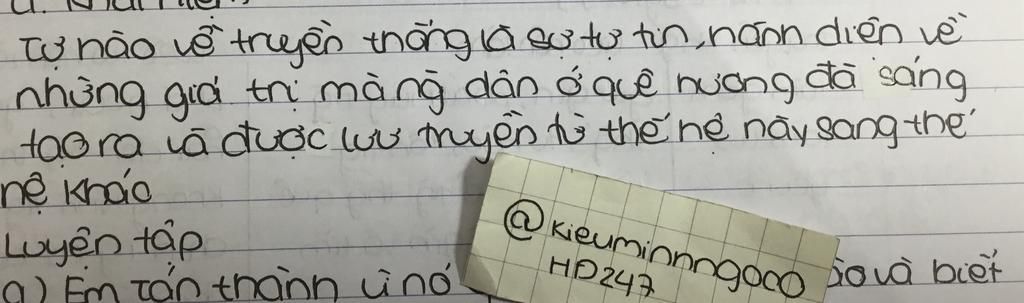 Tự nào về truyền thống là sự tự tin, hãnh diện về
những giá trị mà ng dân ở quê hương đã sáng
tạo ra và được lưu truyền từ thế hệ này sang thế
hệ khác
Luyện tập
a) Em tán thành vì nó
ào và biết
@kieuminnngooo
HD247